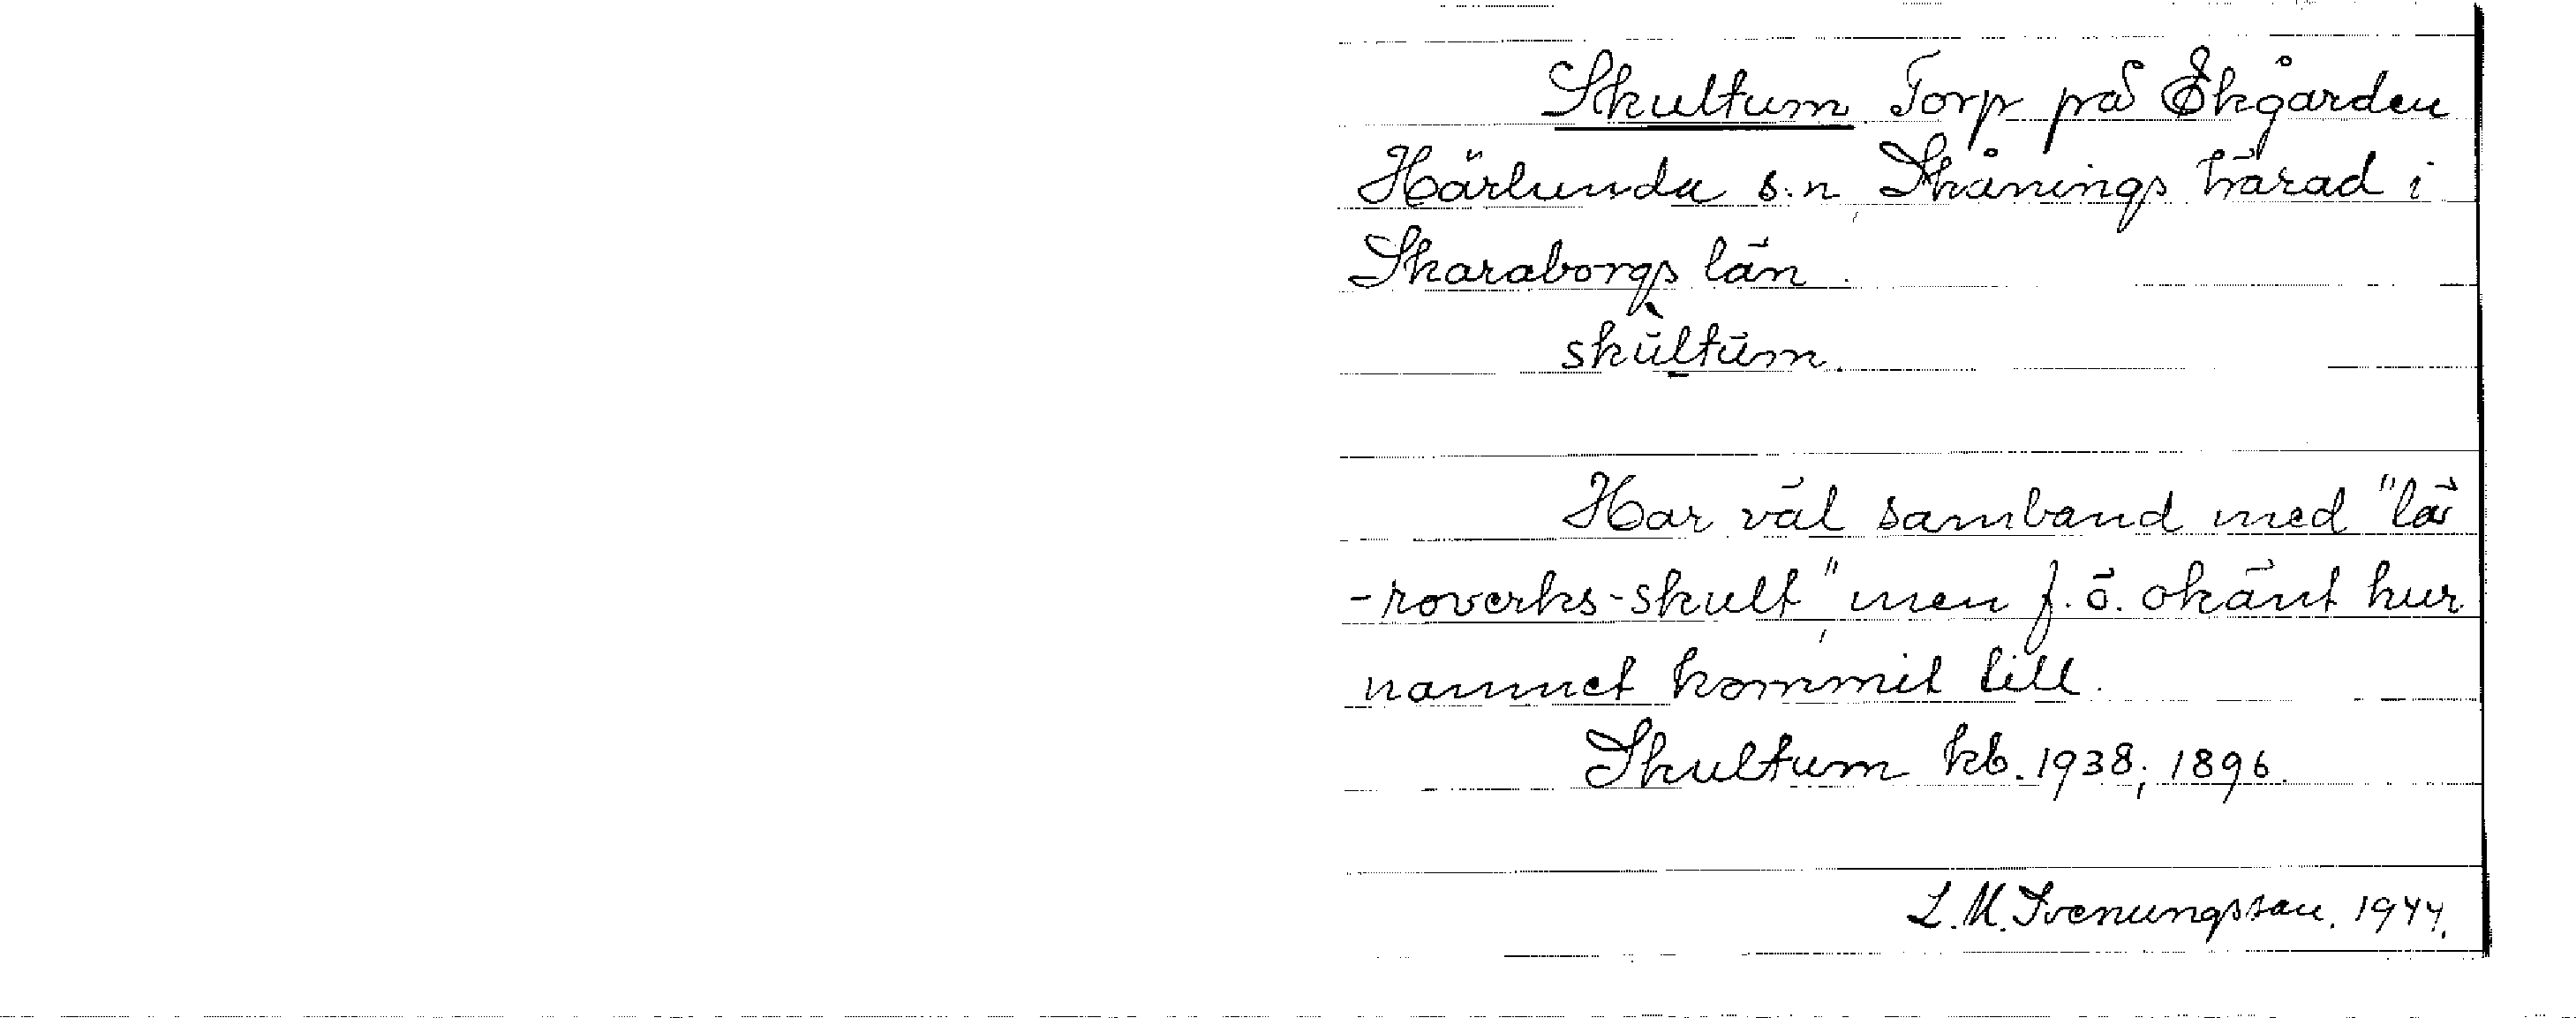 Skultum Torp på Ekgården
Härlunda s.n, Skånings härad i
Skaraborgs län.
skultum.
Har väl samband med "lä
-roverks-skult", men f.ö. okänt hur
namnet kommit till.
Skultum kb. 1938; 1896.
L.M. Svenungsson. 1944.